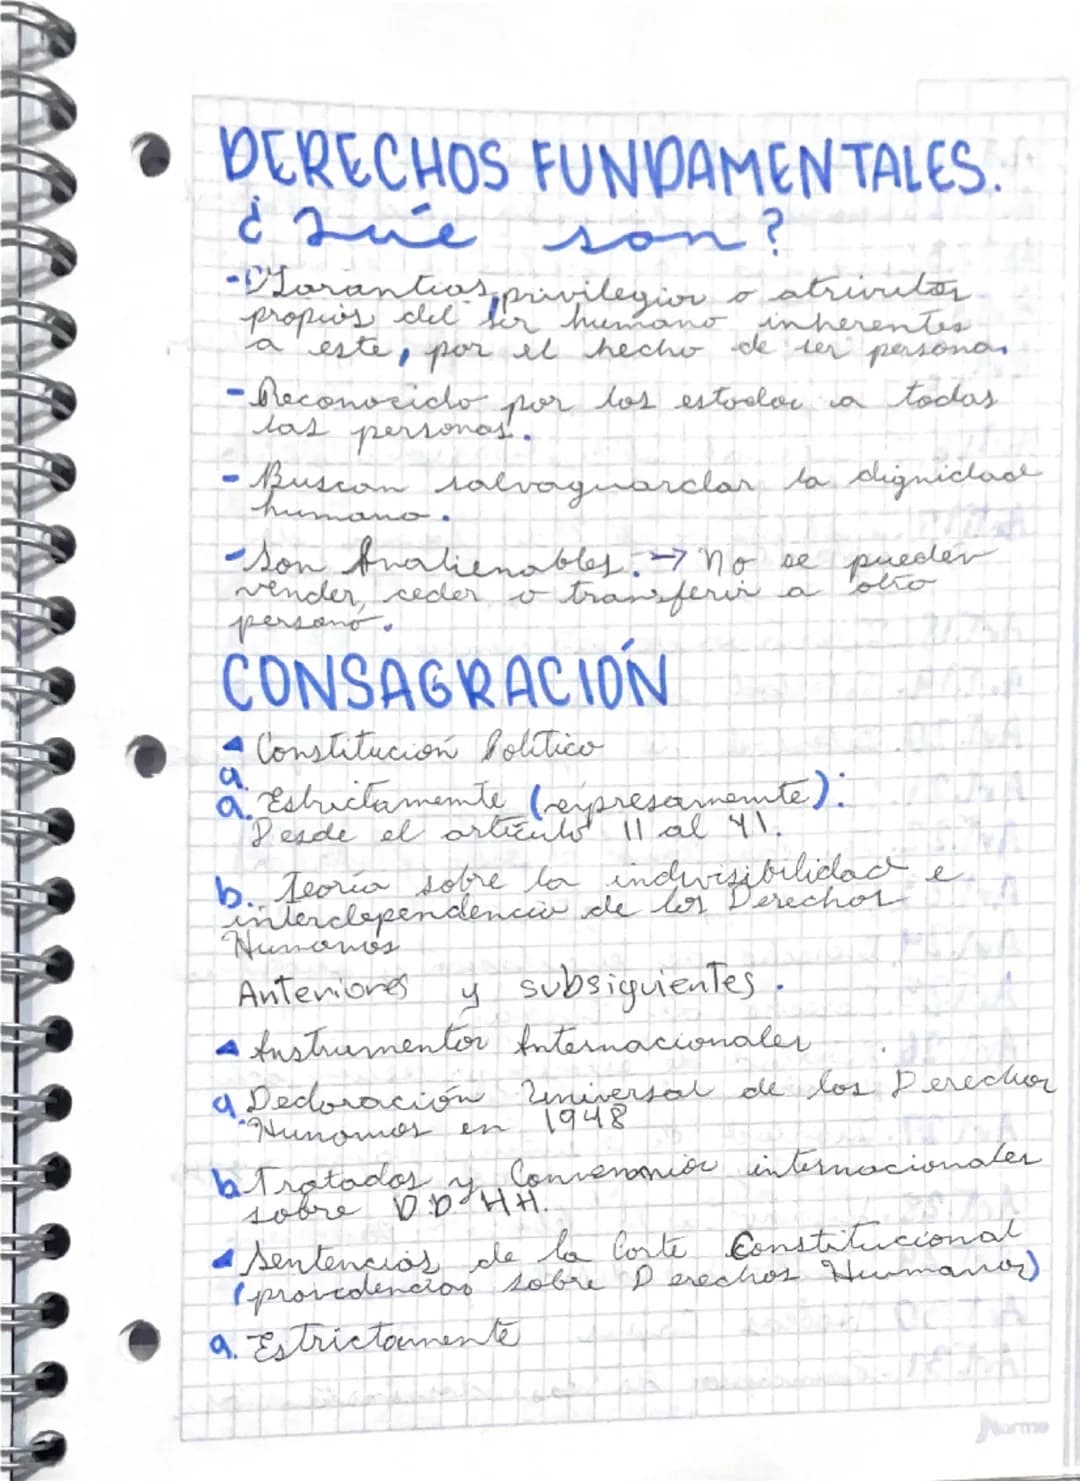 DERECHOS FUNDAMENTALES.
¿Qué son?
- Garantías, privilegios o atributos
propios del ser humano inherentes
a este, por el hecho de ser persona.
- Reconocido por los estados a todas
las personas.
- Buscan salvaguardar la dignidad
humana.
- Son Inalienables. → No se pueden
vender, ceder o transferir a otra
persona.
CONSAGRACIÓN
Constitución Política
a.
a. Estrictamente (expresamente):
Desde el artículo 11 al 41.
b. Teoría sobre la indivisibilidad e
interdependencia de los Derechos
Humanos
Anteriores y subsiguientes.
Instrumentos Internacionales
a. Declaración Universal de los Derechos
Humanos en 1948
b. Tratados y Convenios internacionales
sobre D.D H.H.
Sentencias de la Corte Constitucional
(providencias sobre Derechos Humanos)
a. Estrictamente
Norma